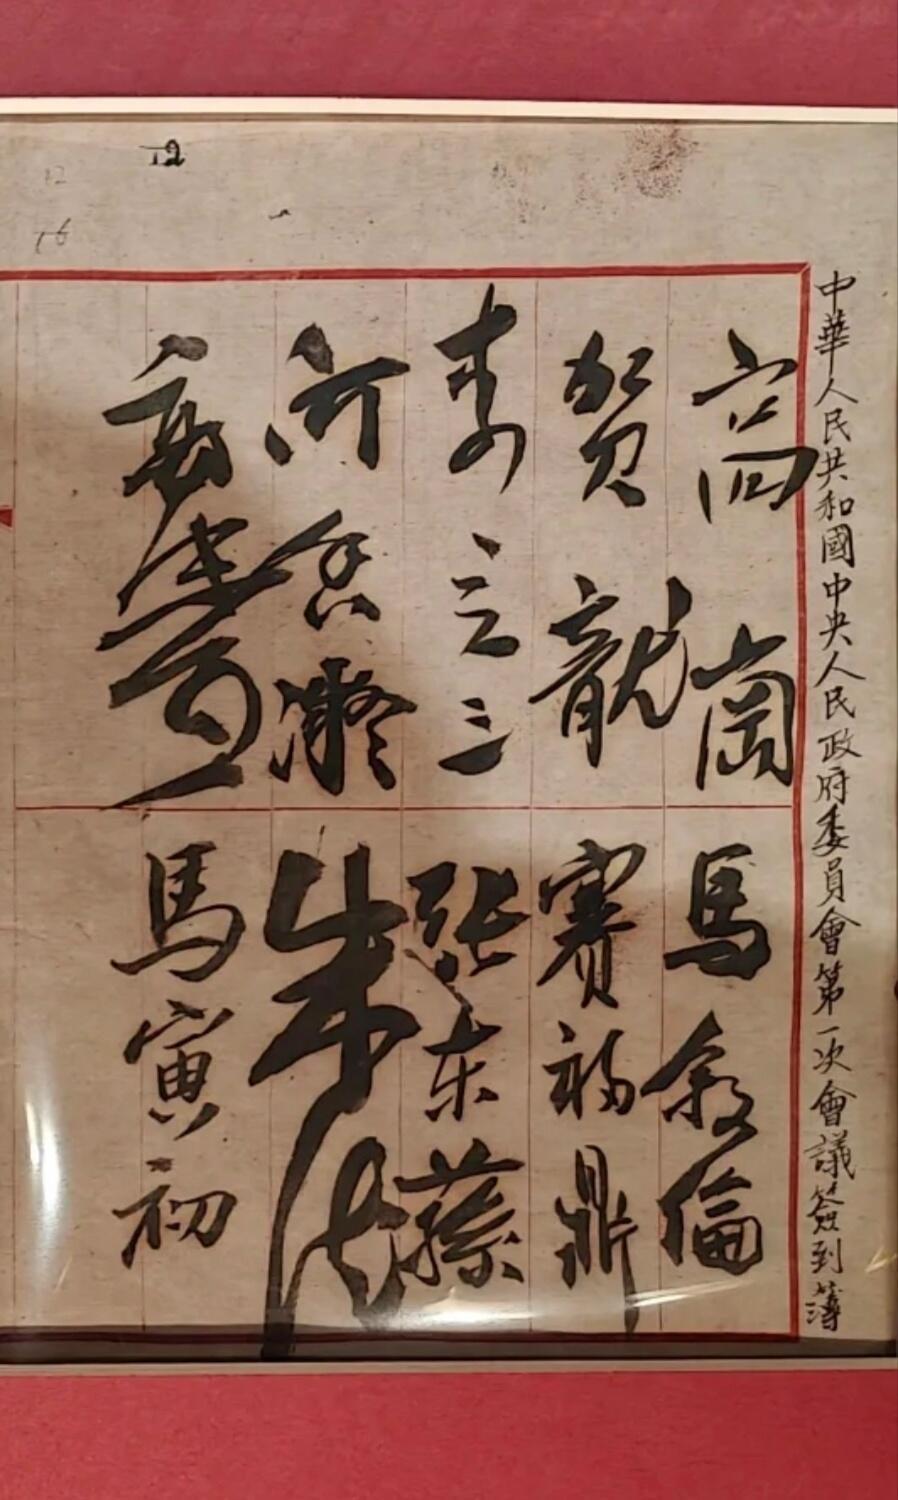 中華人民共和國中央人民政府委員會第一次會議簽到薄
高崗
賀龍
李立三
何香凝
馬叙倫
賽福鼎
張东蓀
朱德
馬寅初
12
16